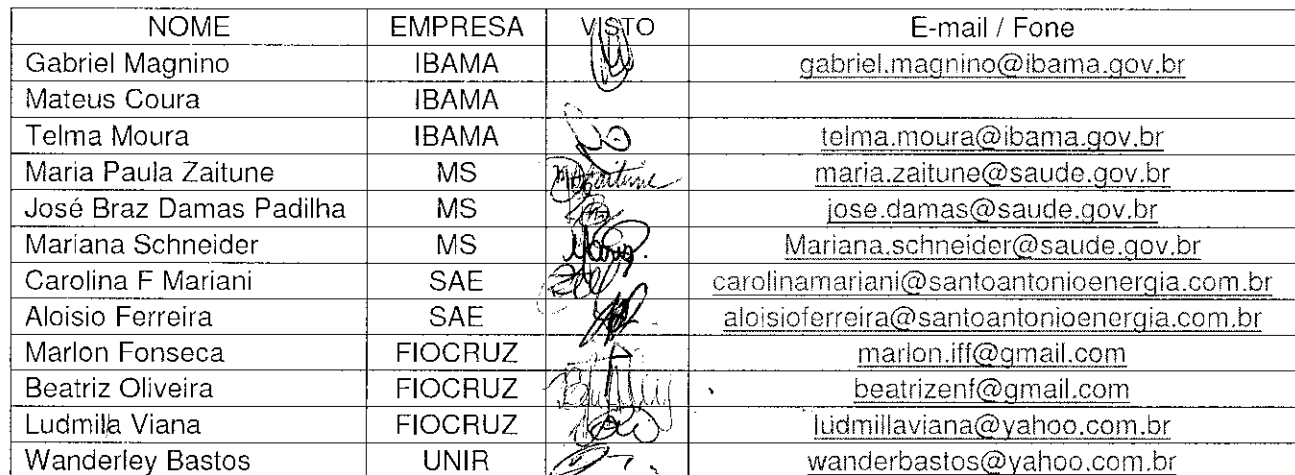 NOME EMPRESA VISTO E-mail / Fone
Gabriel Magnino IBAMA gabriel.magnino@ibama.gov.br
Mateus Coura IBAMA
Telma Moura IBAMA telma.moura@ibama.gov.br
Maria Paula Zaitune MS maria.zaitune@saude.gov.br
José Braz Damas Padilha MS jose.damas@saude.gov.br
Mariana Schneider MS Mariana.schneider@saude.gov.br
Carolina F Mariani SAE carolinamariani@santoantonioenergia.com.br
Aloisio Ferreira SAE aloisioferreira@santoantonioenergia.com.br
Marlon Fonseca FIOCRUZ marlon.iff@gmail.com
Beatriz Oliveira FIOCRUZ beatrizenf@gmail.com
Ludmilla Viana FIOCRUZ ludmillaviana@yahoo.com.br
Wanderley Bastos UNIR wanderbastos@yahoo.com.br